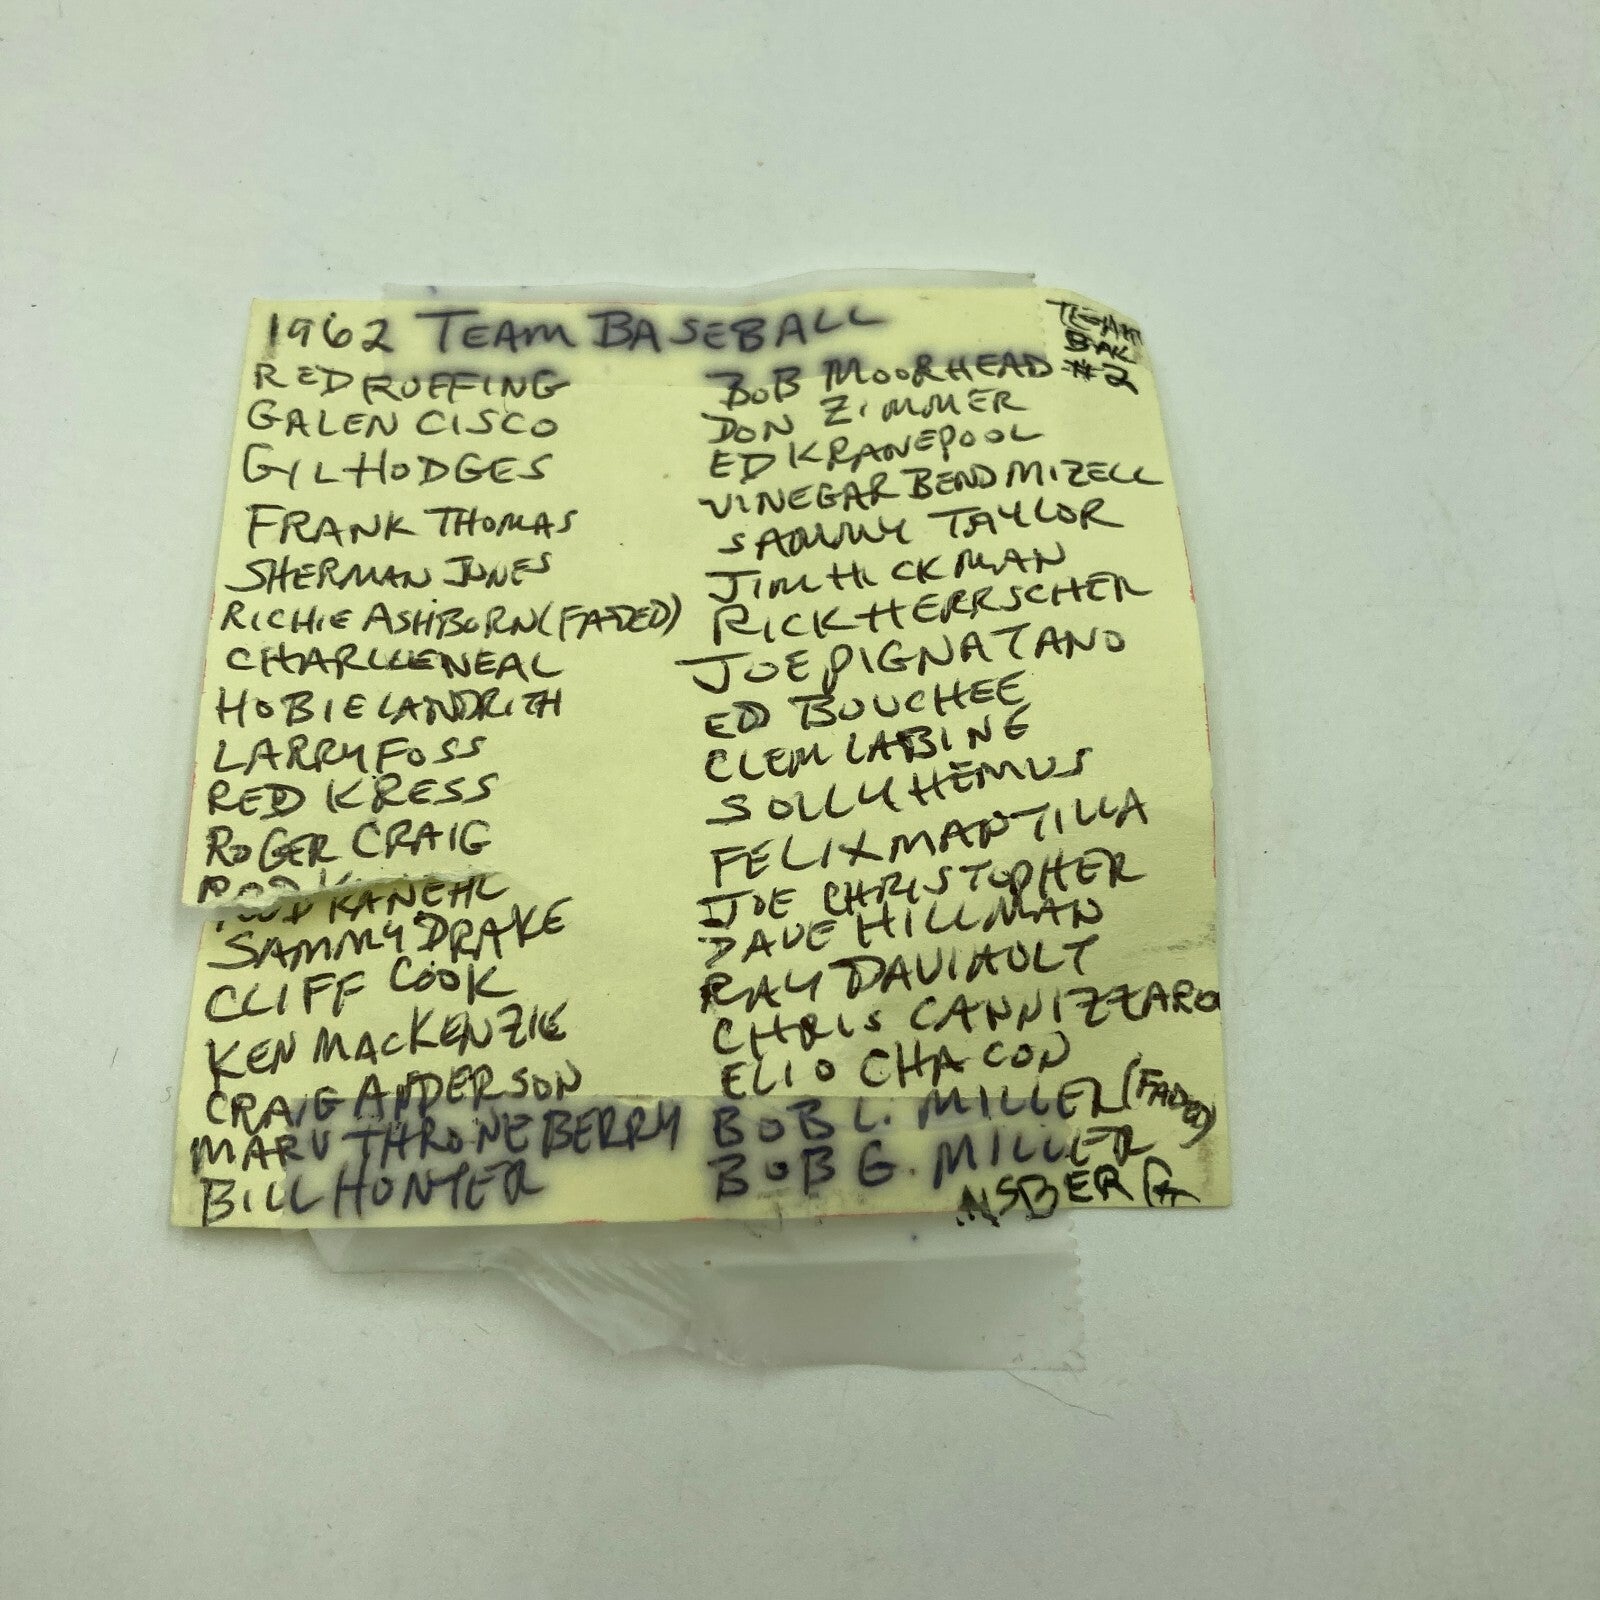 1962 TEAM BASEBALL
TEAM
BALL
#2
RED RUFFING
GALEN CISCO
GIL HODGES
FRANK THOMAS
SHERMAN JONES
RICHIE ASHBURN (FADED)
CHARLIE NEAL
HOBIE LANDRITH
LARRY FOSS
RED KRESS
ROGER CRAIG
ROD KANEHL
SAMMY DRAKE
CLIFF COOK
KEN MACKENZIE
CRAIG ANDERSON
MARV THRONEBERRY
BILL HUNTER
BOB MOORHEAD
DON ZIMMER
ED KRANEPOOL
VINEGAR BEND MIZELL
SAMMY TAYLOR
JIM HICKMAN
RICK HERRSCHER
JOE PIGNATANO
ED BOUCHEE
CLEM LABINE
SOLLY HEMUS
FELIX MANTILLA
JOE CHRISTOPHER
DAVE HILLMAN
RAY DAVIAULT
CHRIS CANNIZZARO
ELIO CHACON
BOB L. MILLER (FADED)
BOB G. MILLER
NSBERG